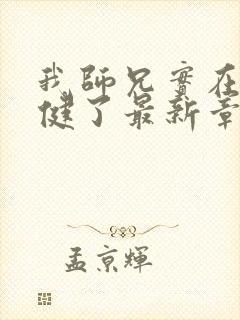 我師兄實在
健了最新章
孟京輝